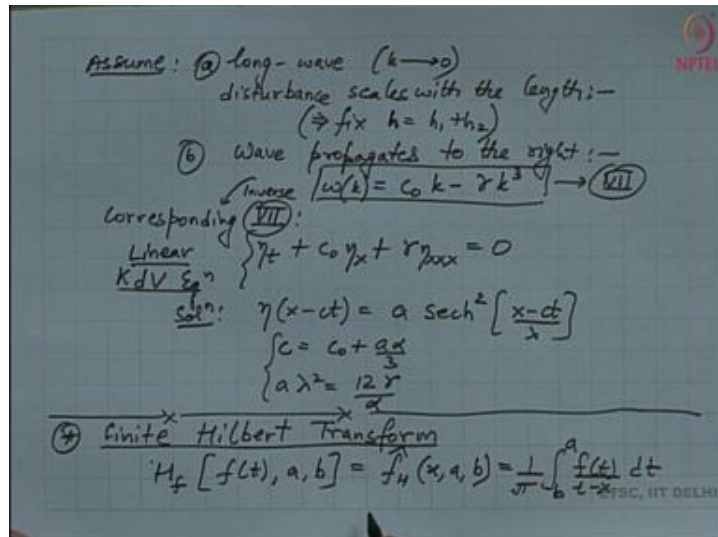 NPTEL
Assume: ⓐ long-wave (k⟶0)
disturbance scales with the length:-
(⇒ fix h = h₁+h₂)
ⓑ Wave propagates to the right:-
Inverse ω(k) = c₀ k - γ k³ → VII
Corresponding VII:
Linear KdV Eqⁿ { ηt + c₀ ηx + γ ηxxx = 0
Solⁿ: η(x-ct) = a sech² [ (x-ct)/λ ]
{ c = c₀ + aα/3
aλ² = 12γ/α
④ Finite Hilbert Transform
H_f [f(t), a, b] = f̂_H (x, a, b) = 1/π ∫_b^a f(t)/(t-x) dt
ETSC, IIT DELHI